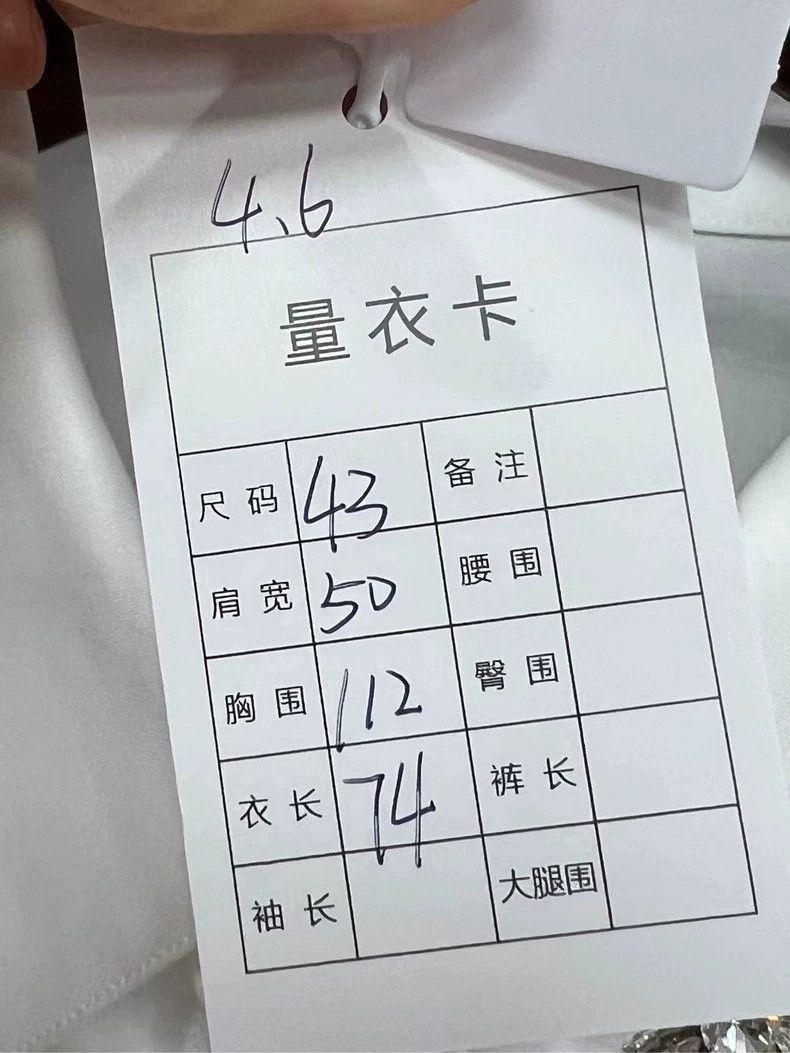 4.6
量衣卡
尺码 43 备注
肩宽 50 腰围
胸围 112 臀围
衣长 74 裤长
袖长 大腿围